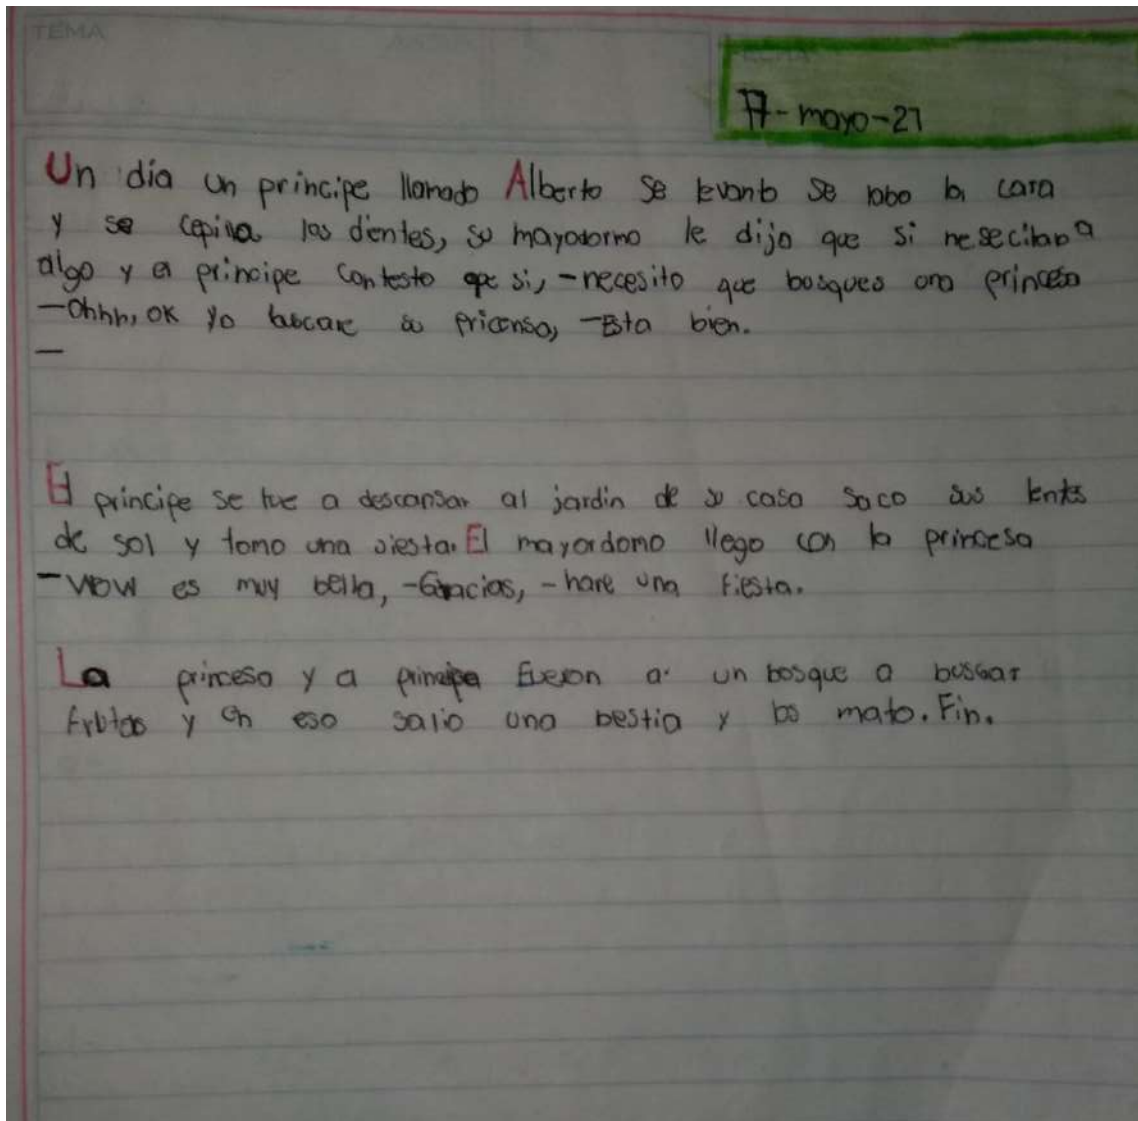 TEMA
FECHA
17-mayo-21
Un día un principe llamado Alberto se levanto se labo la cara
y se cepillo los dientes, su mayordormo le dijo que si nesecitaba
algo y el principe contesto que si, -necesito que bosques una princesa
-Ohhh, OK yo buscare su pricensa, -Esta bien.
-
El principe se fue a descansar al jardin de su casa saco sus lentes
de sol y tomo una siesta. El mayordomo llego con la princesa
-WOW es muy bella, -Gracias, -hare una fiesta.
La princesa y el principe fueron a un bosque a buscar
frutas y en eso salio una bestia y los mato. Fin.